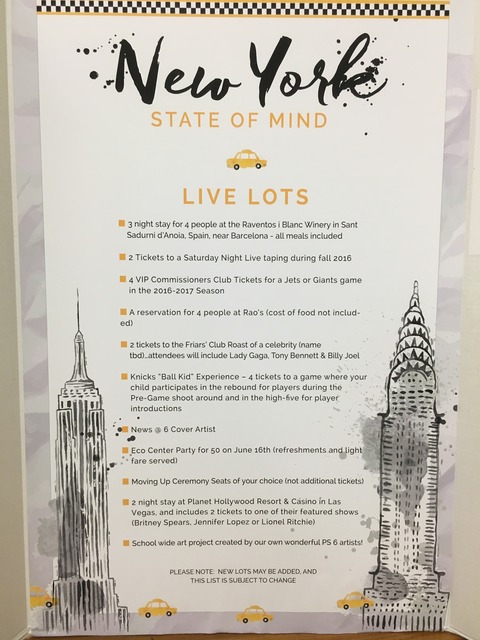 New York
STATE OF MIND
LIVE LOTS
3 night stay for 4 people at the Raventos i Blanc Winery in Sant
Sadurni d'Anoia, Spain, near Barcelona - all meals included
2 Tickets to a Saturday Night Live taping during fall 2016
4 VIP Commissioners Club Tickets for a Jets or Giants game
in the 2016-2017 Season
A reservation for 4 people at Rao's (cost of food not includ-
ed)
2 tickets to the Friars' Club Roast of a celebrity (name
tbd)..attendees will include Lady Gaga, Tony Bennett & Billy Joel
Knicks "Ball Kid" Experience – 4 tickets to a game where your
child participates in the rebound for players during the
Pre-Game shoot around and in the high-five for player
introductions
News @ 6 Cover Artist
Eco Center Party for 50 on June 16th (refreshments and light
fare served)
Moving Up Ceremony Seats of your choice (not additional tickets)
2 night stay at Planet Hollywood Resort & Casino in Las
Vegas, and includes 2 tickets to one of their featured shows
(Britney Spears, Jennifer Lopez or Lionel Ritchie)
School wide art project created by our own wonderful PS 6 artists!
PLEASE NOTE: NEW LOTS MAY BE ADDED, AND
THIS LIST IS SUBJECT TO CHANGE